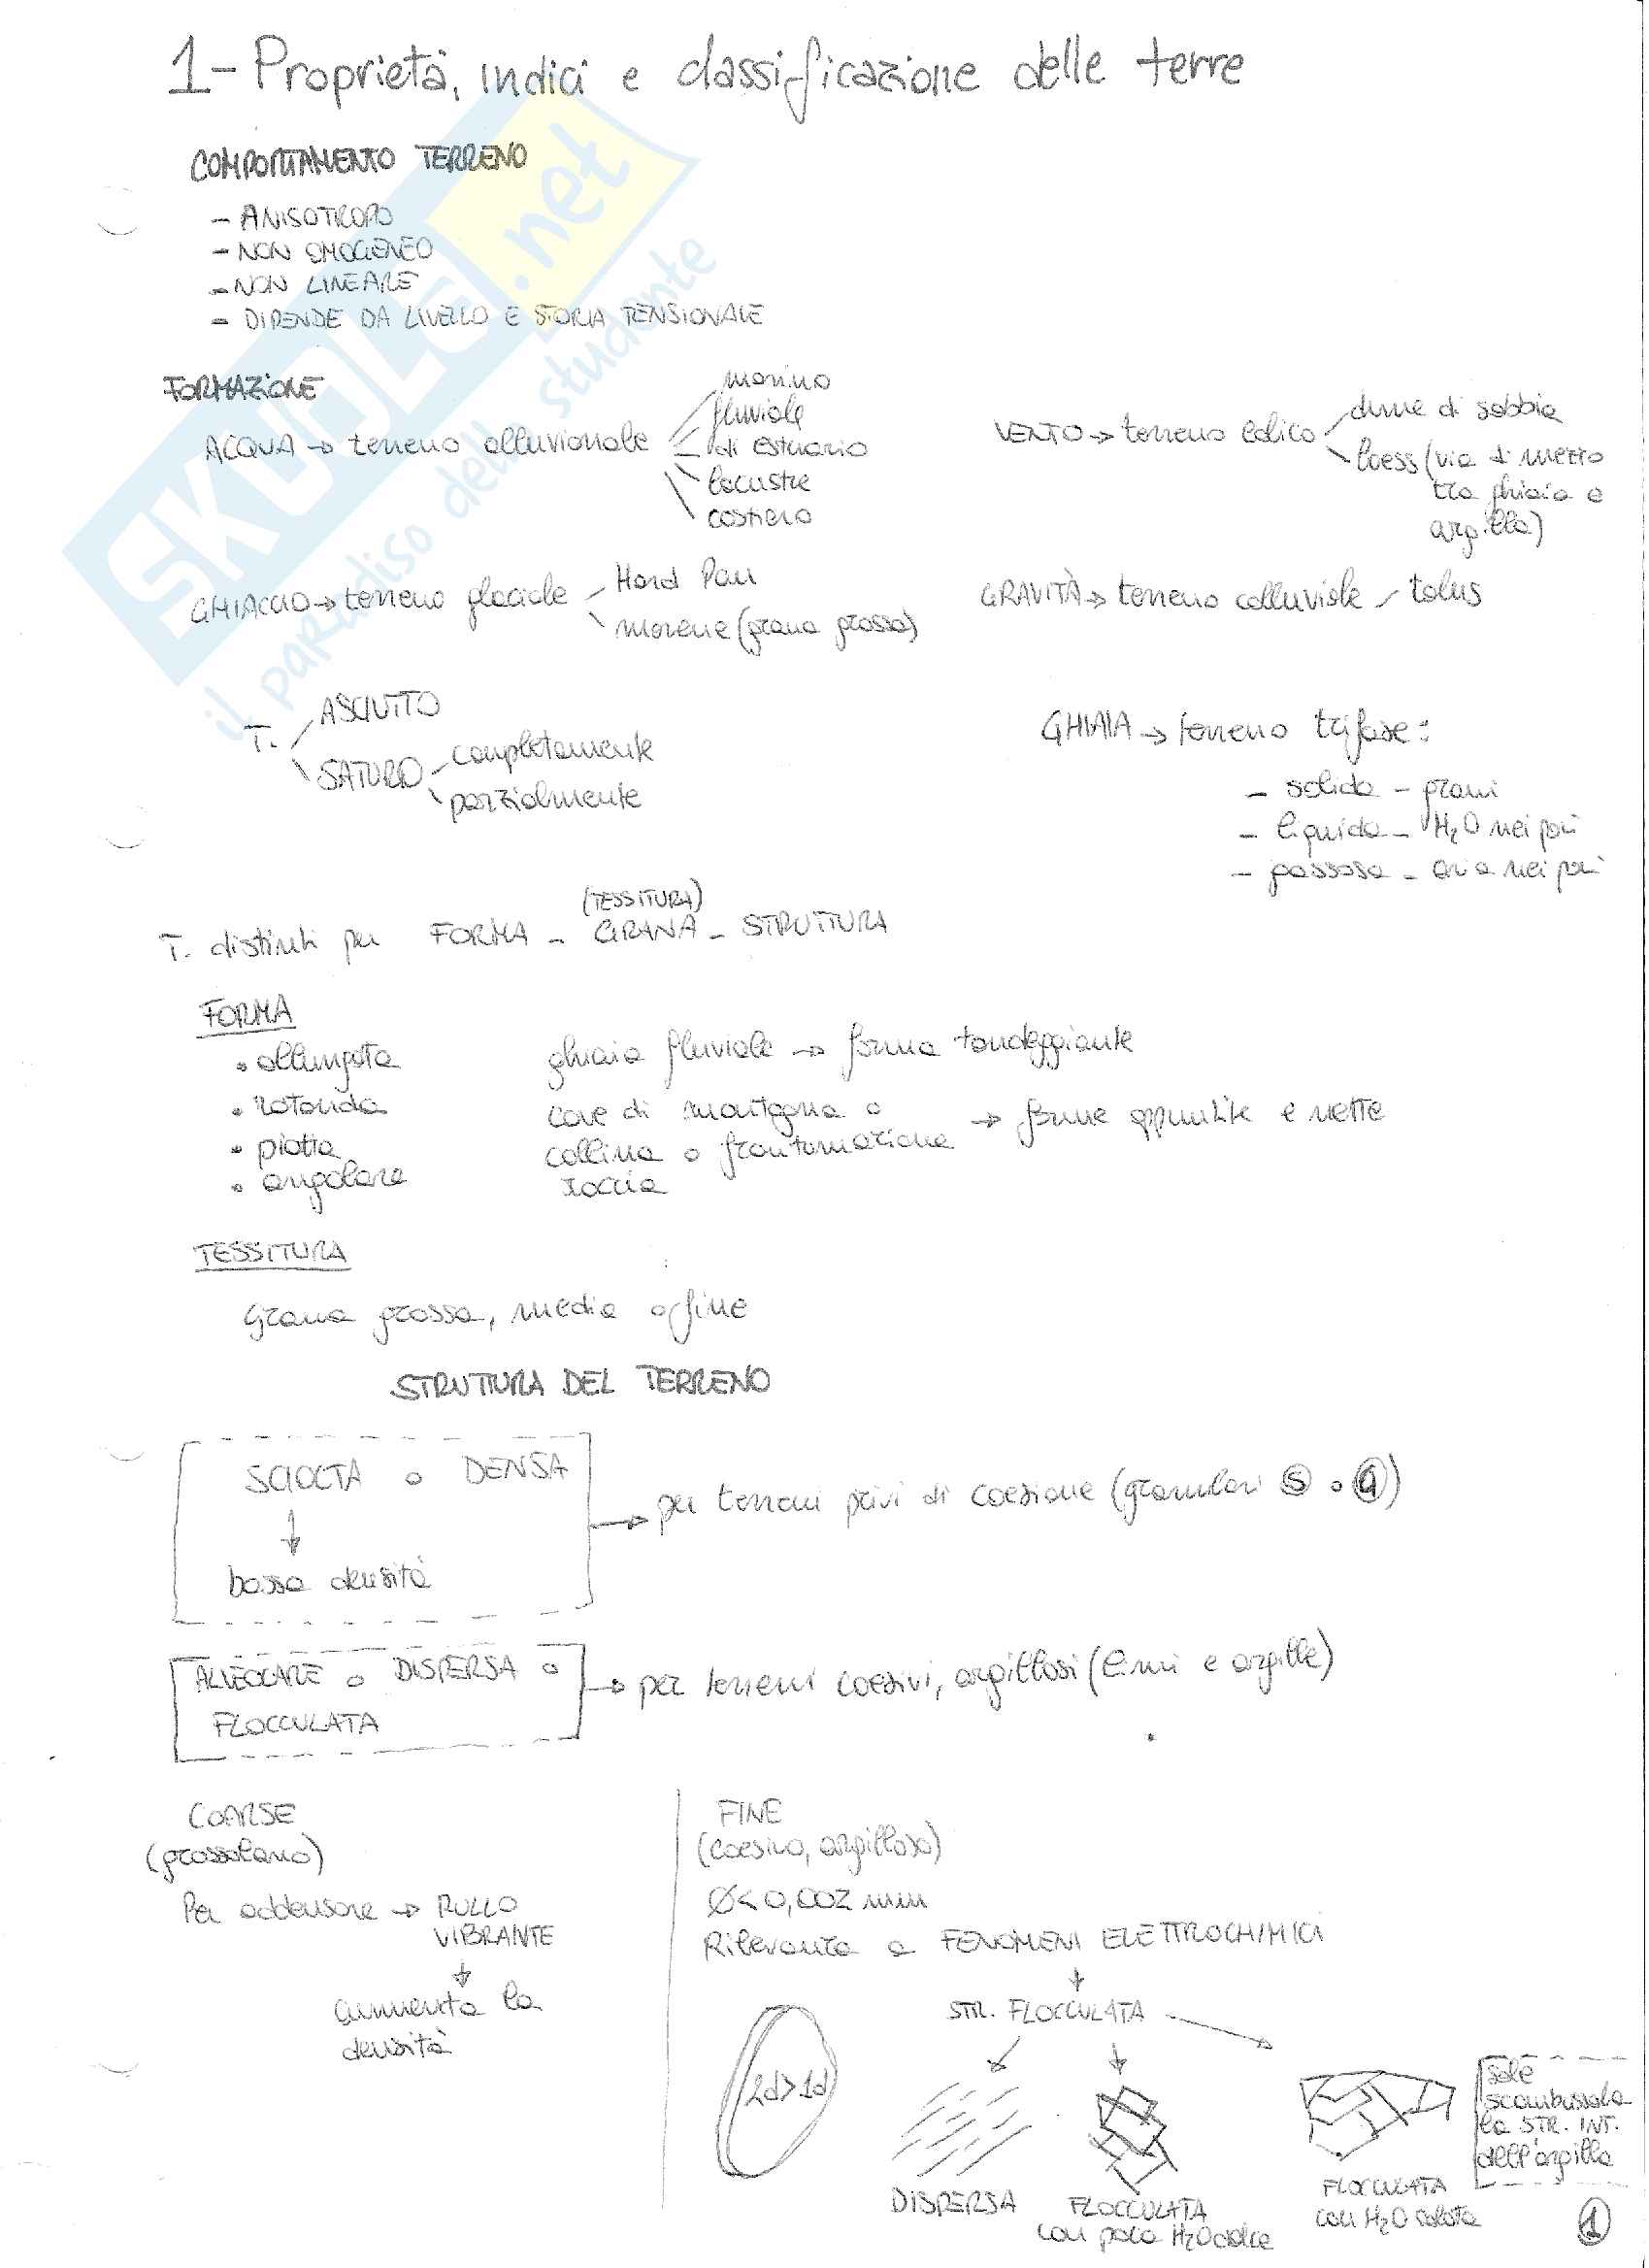 1- Proprietà, indici e classificazione delle terre
COMPORTAMENTO TERRENO
- ANISOTROPO
- NON OMOGENEO
- NON LINEARE
- DIPENDE DA LIVELLO E STORIA TENSIONALE
FORMAZIONE
ACQUA → terreno alluvionale
marino
fluviale
di estuario
lacustre
costiero
VENTO → terreno eolico
dune di sabbia
loess (via di mezzo
tra ghiaia e
argilla)
GHIACCIO → terreno glaciale
Hard Pan
morene (grana grossa)
GRAVITÀ → terreno colluviale
talus
T.
ASCIUTTO
SATURO
completamente
parzialmente
GHIAIA → terreno trifase:
- solida - grani
- liquida - H2O nei pori
- gassosa - aria nei pori
(TESSITURA)
T. distinti per FORMA - GRANA - STRUTTURA
FORMA
• allungata
• rotonda
• piatta
• angolare
ghiaia fluviale → forma tondeggiante
cave di montagna o
collina o frantumazione → forme appuntite e nette
roccia
TESSITURA
Grana grossa, media o fine
STRUTTURA DEL TERRENO
SCIOLTA o DENSA
↓
bassa densità
→ per terreni privi di coesione (granulari S o G)
ALVEOLARE o DISPERSA o
FLOCCULATA
→ per terreni coesivi, argillosi (limi e argille)
COARSE
(grossolano)
Per addensare → RULLO
VIBRANTE
↓
aumenta la
densità
FINE
(coesivo, argilloso)
Ø<0,002 mm
Rilevanza a FENOMENI ELETTROCHIMICI
↓
STR. FLOCCULATA
2d>1d
DISPERSA
FLOCCULATA
con poca H2O dolce
FLOCCULATA
con H2O salata
sale
scombussola
la STR. INT.
dell'argilla
1
SKUOLA.net
il paradiso dello studente